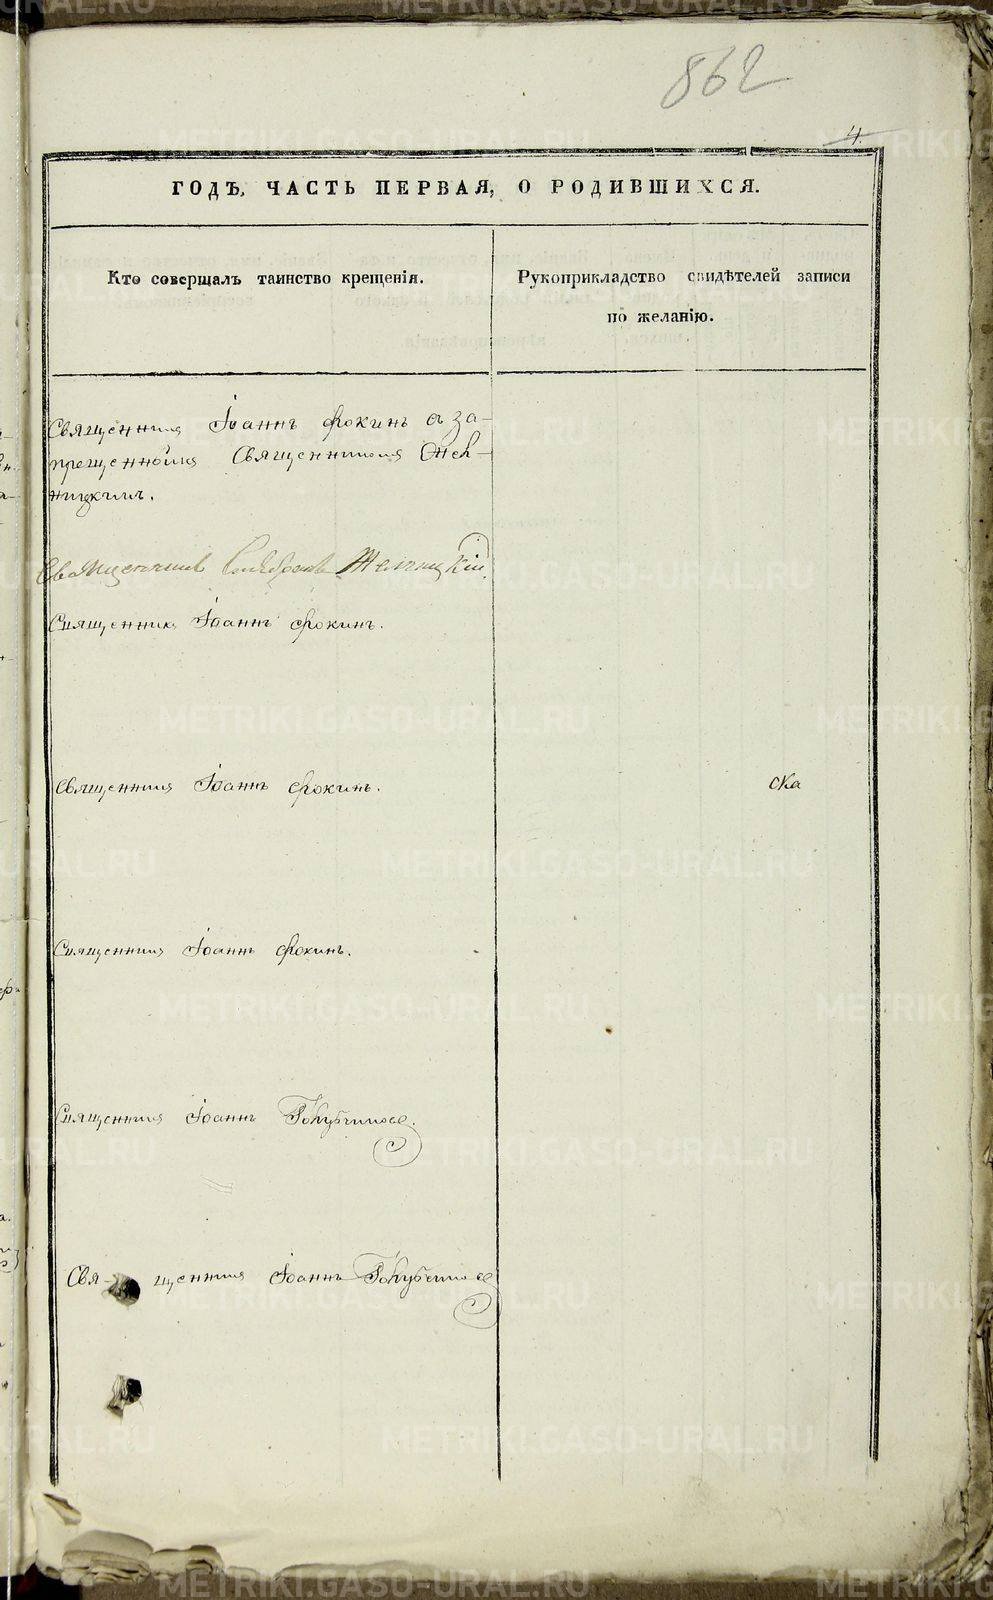 862
4.
ГОДЪ, ЧАСТЬ ПЕРВАЯ, О РОДИВШИХСЯ.
Кто совершалъ таинство крещенія.
Рукоприкладство свидѣтелей записи
по желанію.
Священникъ Іоаннъ Фокинъ а за-
прещеннымъ Священникомъ
Священникъ
Священникъ Іоаннъ Фокинъ.
Священникъ Іоаннъ Фокинъ.
ска
Священникъ Іоаннъ Фокинъ.
Священникъ Іоаннъ Голубчиковъ.
Свя- щенникъ Іоаннъ Голубчиковъ
METRIKI.GASO-URAL.RU